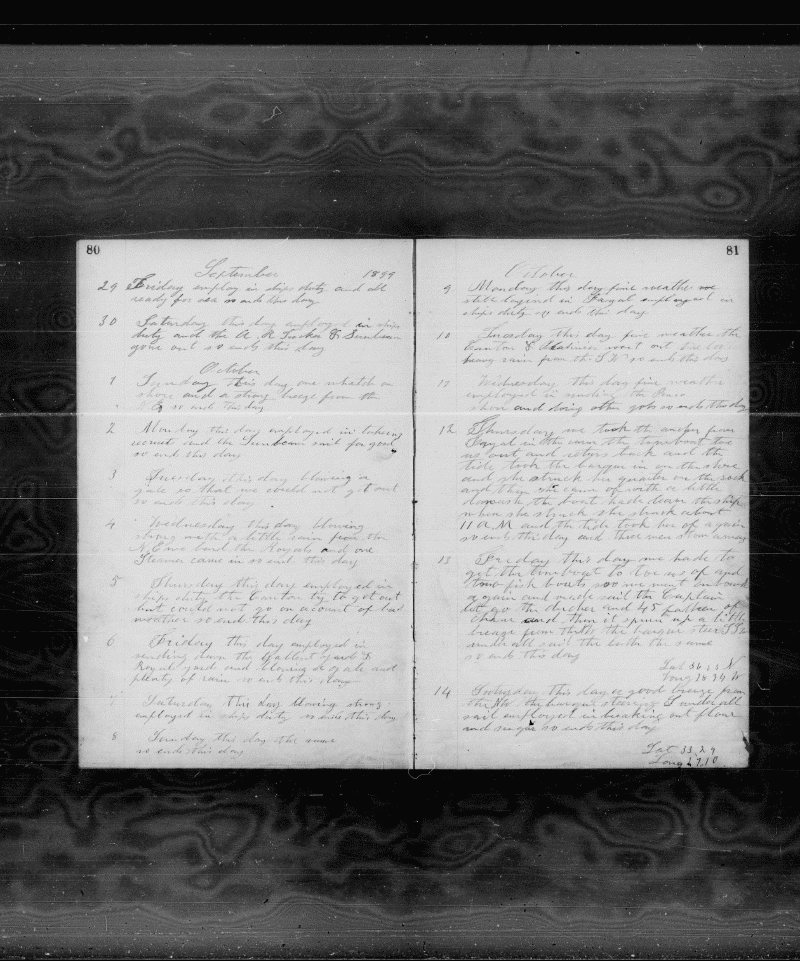 80
September 1899
29 Friday employ in ships duty and all
ready for sea so ends this day
30 Saturday this day employed in ships
duty and the A. R. Tucker & Sunbeam
gone out so ends this day
October
1 Sunday this day one whatch on
shore and a strong breeze from the
N E so ends this day
2 Monday this day employed in
and the Sunbeam sail for good
so ends this day
3 Tuesday this day blowing a
gale so that we could not get out
so ends this day
4 Wednesday this day blowing
strong with a little rain from the
N E the Royals and one
Steamer came in so ends this day
5 Thursday this day employed in
ships duty the Canton try to get out
but could not go on acount of bad
weather so ends this day
6 Friday this day employed in
sending down the Gallent yard &
Royal yard and blowing a gale and
plenty of rain so ends this day
7 Saturday this day blowing strong
employed in ships duty so ends this day
8 Sunday this day the same
so ends this day
81
October
9 Monday this day fine weather we
still in Fayal employed in
ships duty so ends this day
10 Tuesday this day fine weather the
Canton & went out
heavy rain from the S W so ends this day
11 Wednesday this day fine weather
employed in sending the
and doing other jobs so ends this day
12 Thursday we took the anchor from
Fayal in the the towboat
us out and back and the
tide took the barque in on the shore
and she struck her quarter on the rock
and then she came of with a little
the boat the ship
when she struck she struck about
11 A M and the tide took her of again
so ends this day and three men
13 Friday this day we had to
get the towboat to tow us of and
fish boats so we went
again and made sail the Captain
let go the and 45 fathom of
chane and then it sprun up a little
breeze from the barque steer S
under all sail the the same
so ends this day
Lat 36 N
Long W
14 Saturday this day a good breeze from
the NW the barque under all
sail employed in breaking out flour
and sugar so ends this day
Lat 33.29
Long 27.10